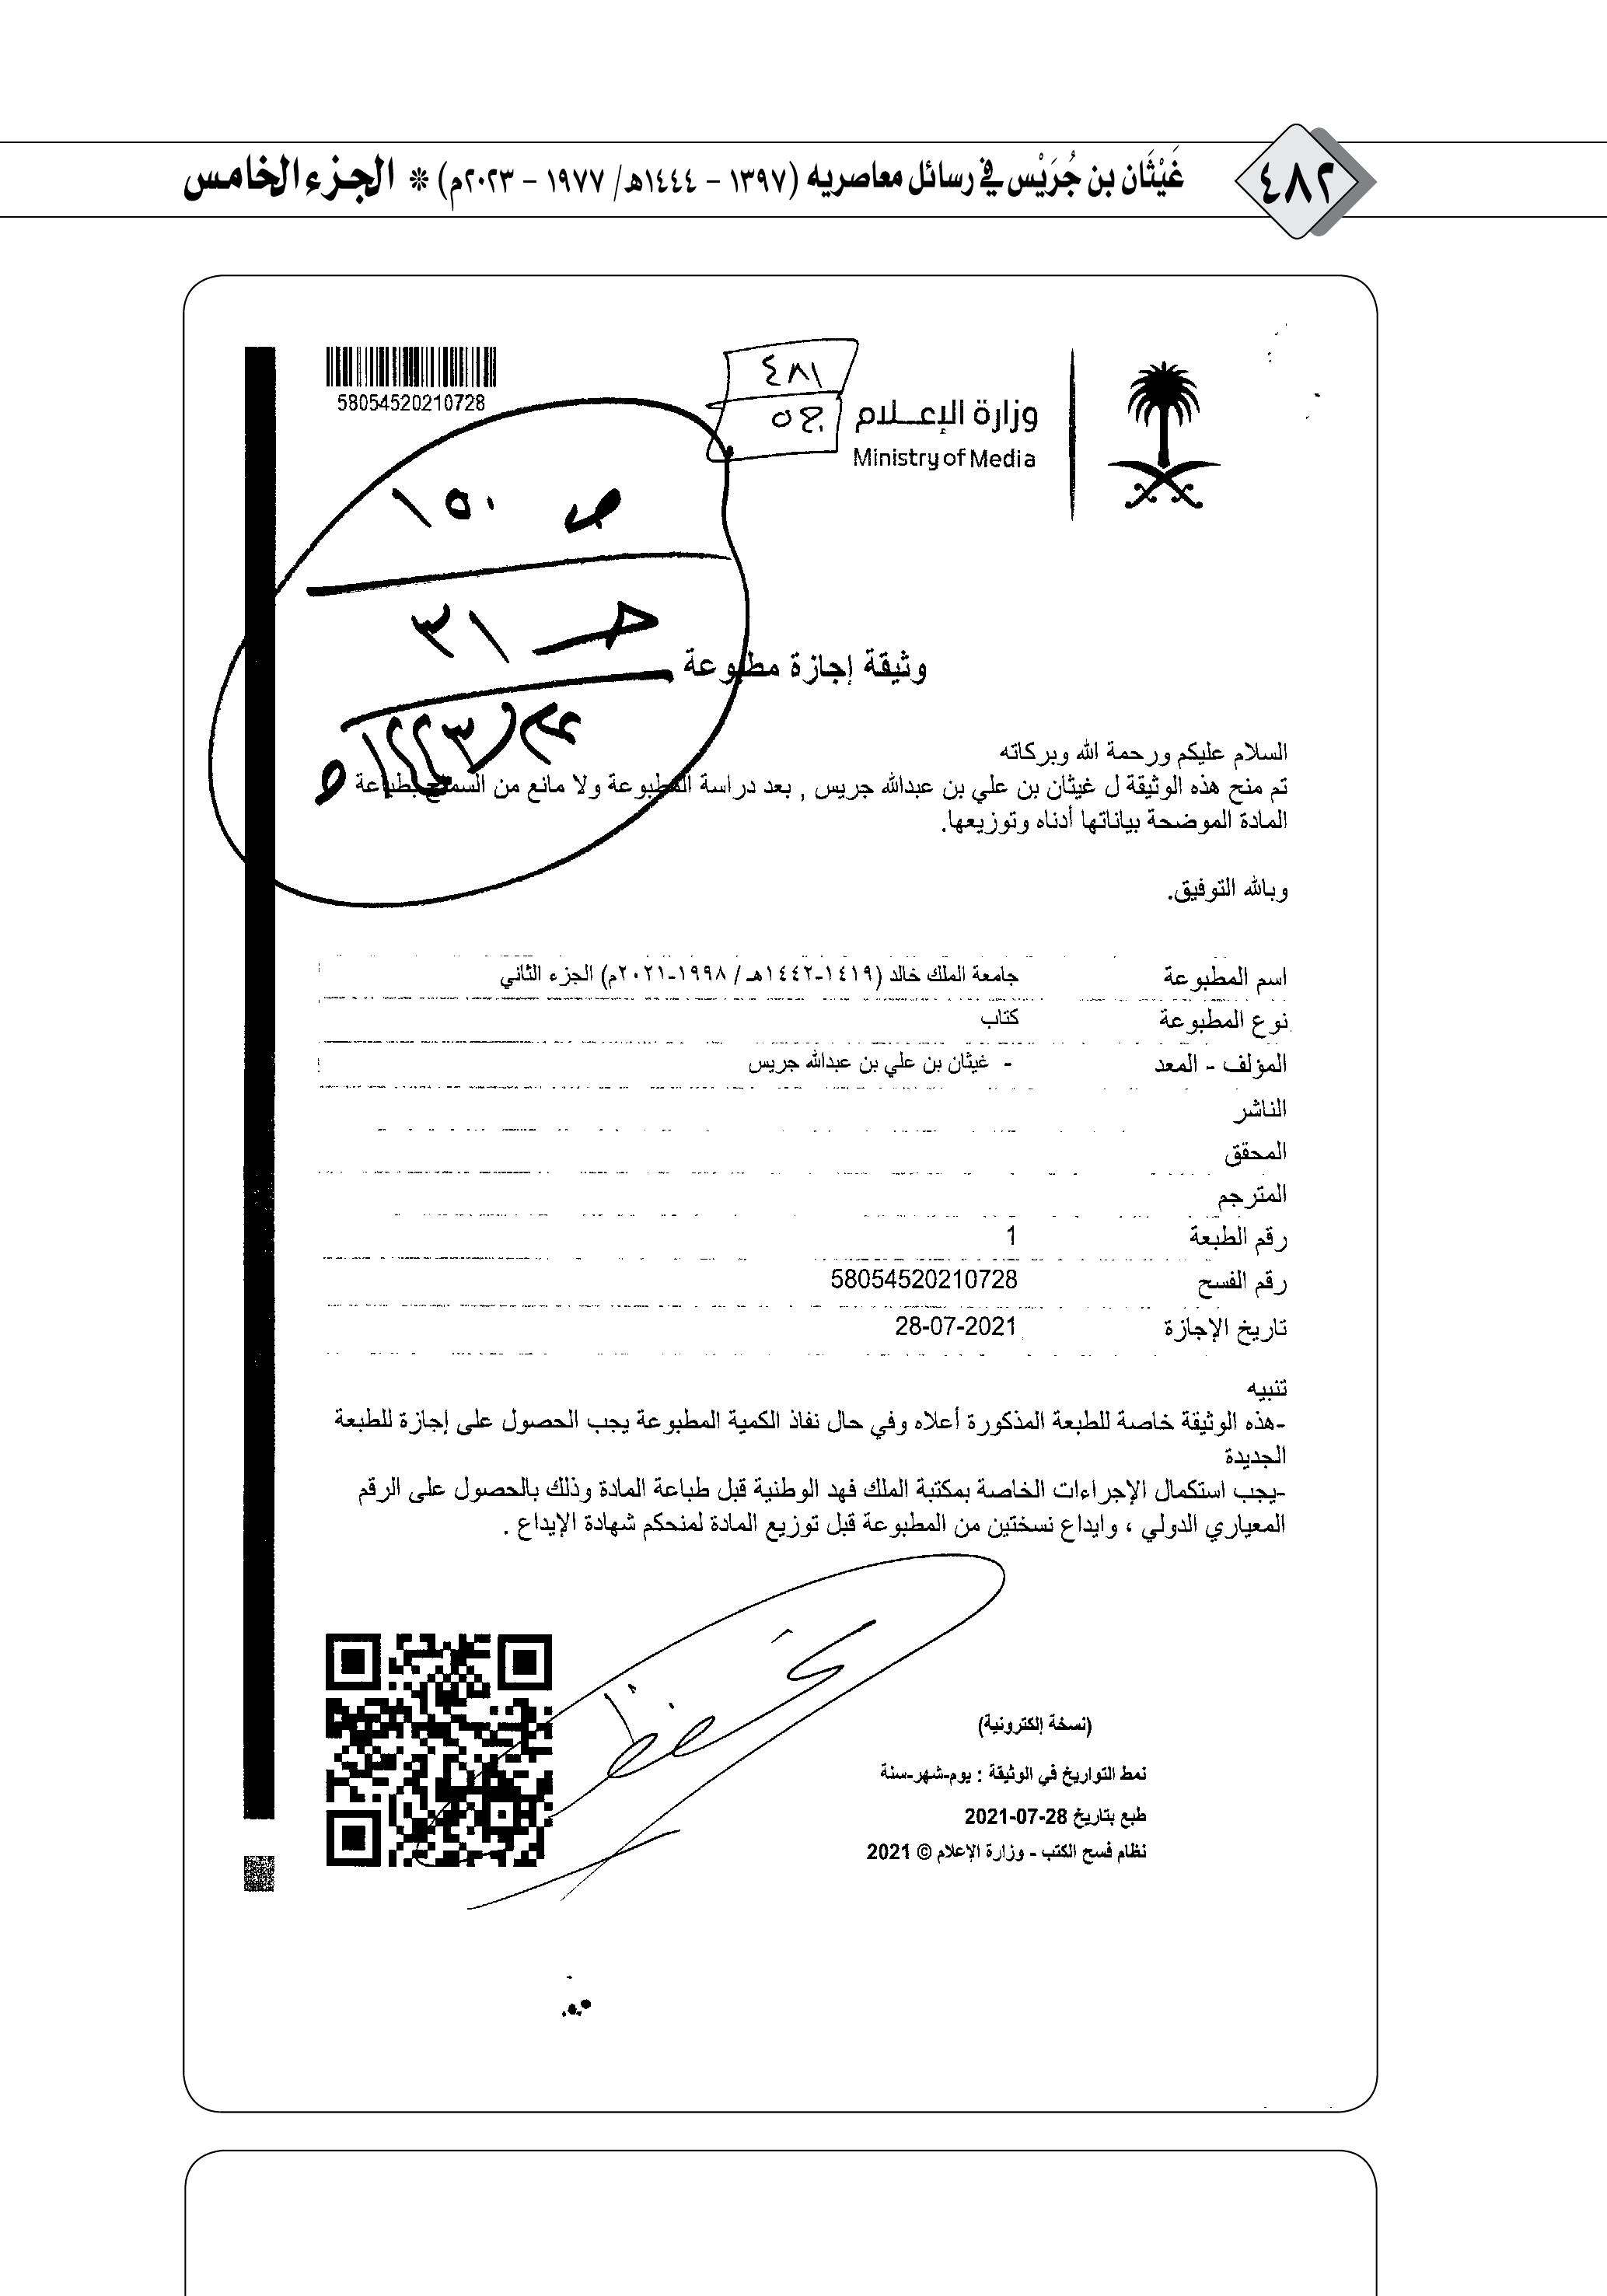 ٤٨٢
غَيْثَان بن جُرَيْس في رسائل معاصريه (١٣٩٧ – ١٤٤٤هـ/ ١٩٧٧ – ٢٠٢٣م) * الجزء الخامس
58054520210728
٤٨١
ج٥
وزارة الإعـــلام
Ministry of Media
ص ١٥٠
حـ ٣١
وثيقة إجازة مطبوعة
السلام عليكم ورحمة الله وبركاته
تم منح هذه الوثيقة ل غيثان بن علي بن عبدالله جريس , بعد دراسة المطبوعة ولا مانع من السماح بطباعة
المادة الموضحة بياناتها أدناه وتوزيعها.
وبالله التوفيق.
اسم المطبوعة جامعة الملك خالد (١٤١٩-١٤٤٢هـ / ١٩٩٨-٢٠٢١م) الجزء الثاني
نوع المطبوعة كتاب
المؤلف - المعد - غيثان بن علي بن عبدالله جريس
الناشر
المحقق
المترجم
رقم الطبعة 1
رقم الفسح 58054520210728
تاريخ الإجازة 28-07-2021
تنبيه
-هذه الوثيقة خاصة للطبعة المذكورة أعلاه وفي حال نفاذ الكمية المطبوعة يجب الحصول على إجازة للطبعة
الجديدة
-يجب استكمال الإجراءات الخاصة بمكتبة الملك فهد الوطنية قبل طباعة المادة وذلك بالحصول على الرقم
المعياري الدولي ، وايداع نسختين من المطبوعة قبل توزيع المادة لمنحكم شهادة الإيداع .
(نسخة إلكترونية)
نمط التواريخ في الوثيقة : يوم-شهر-سنة
طبع بتاريخ 28-07-2021
نظام فسح الكتب - وزارة الإعلام © 2021